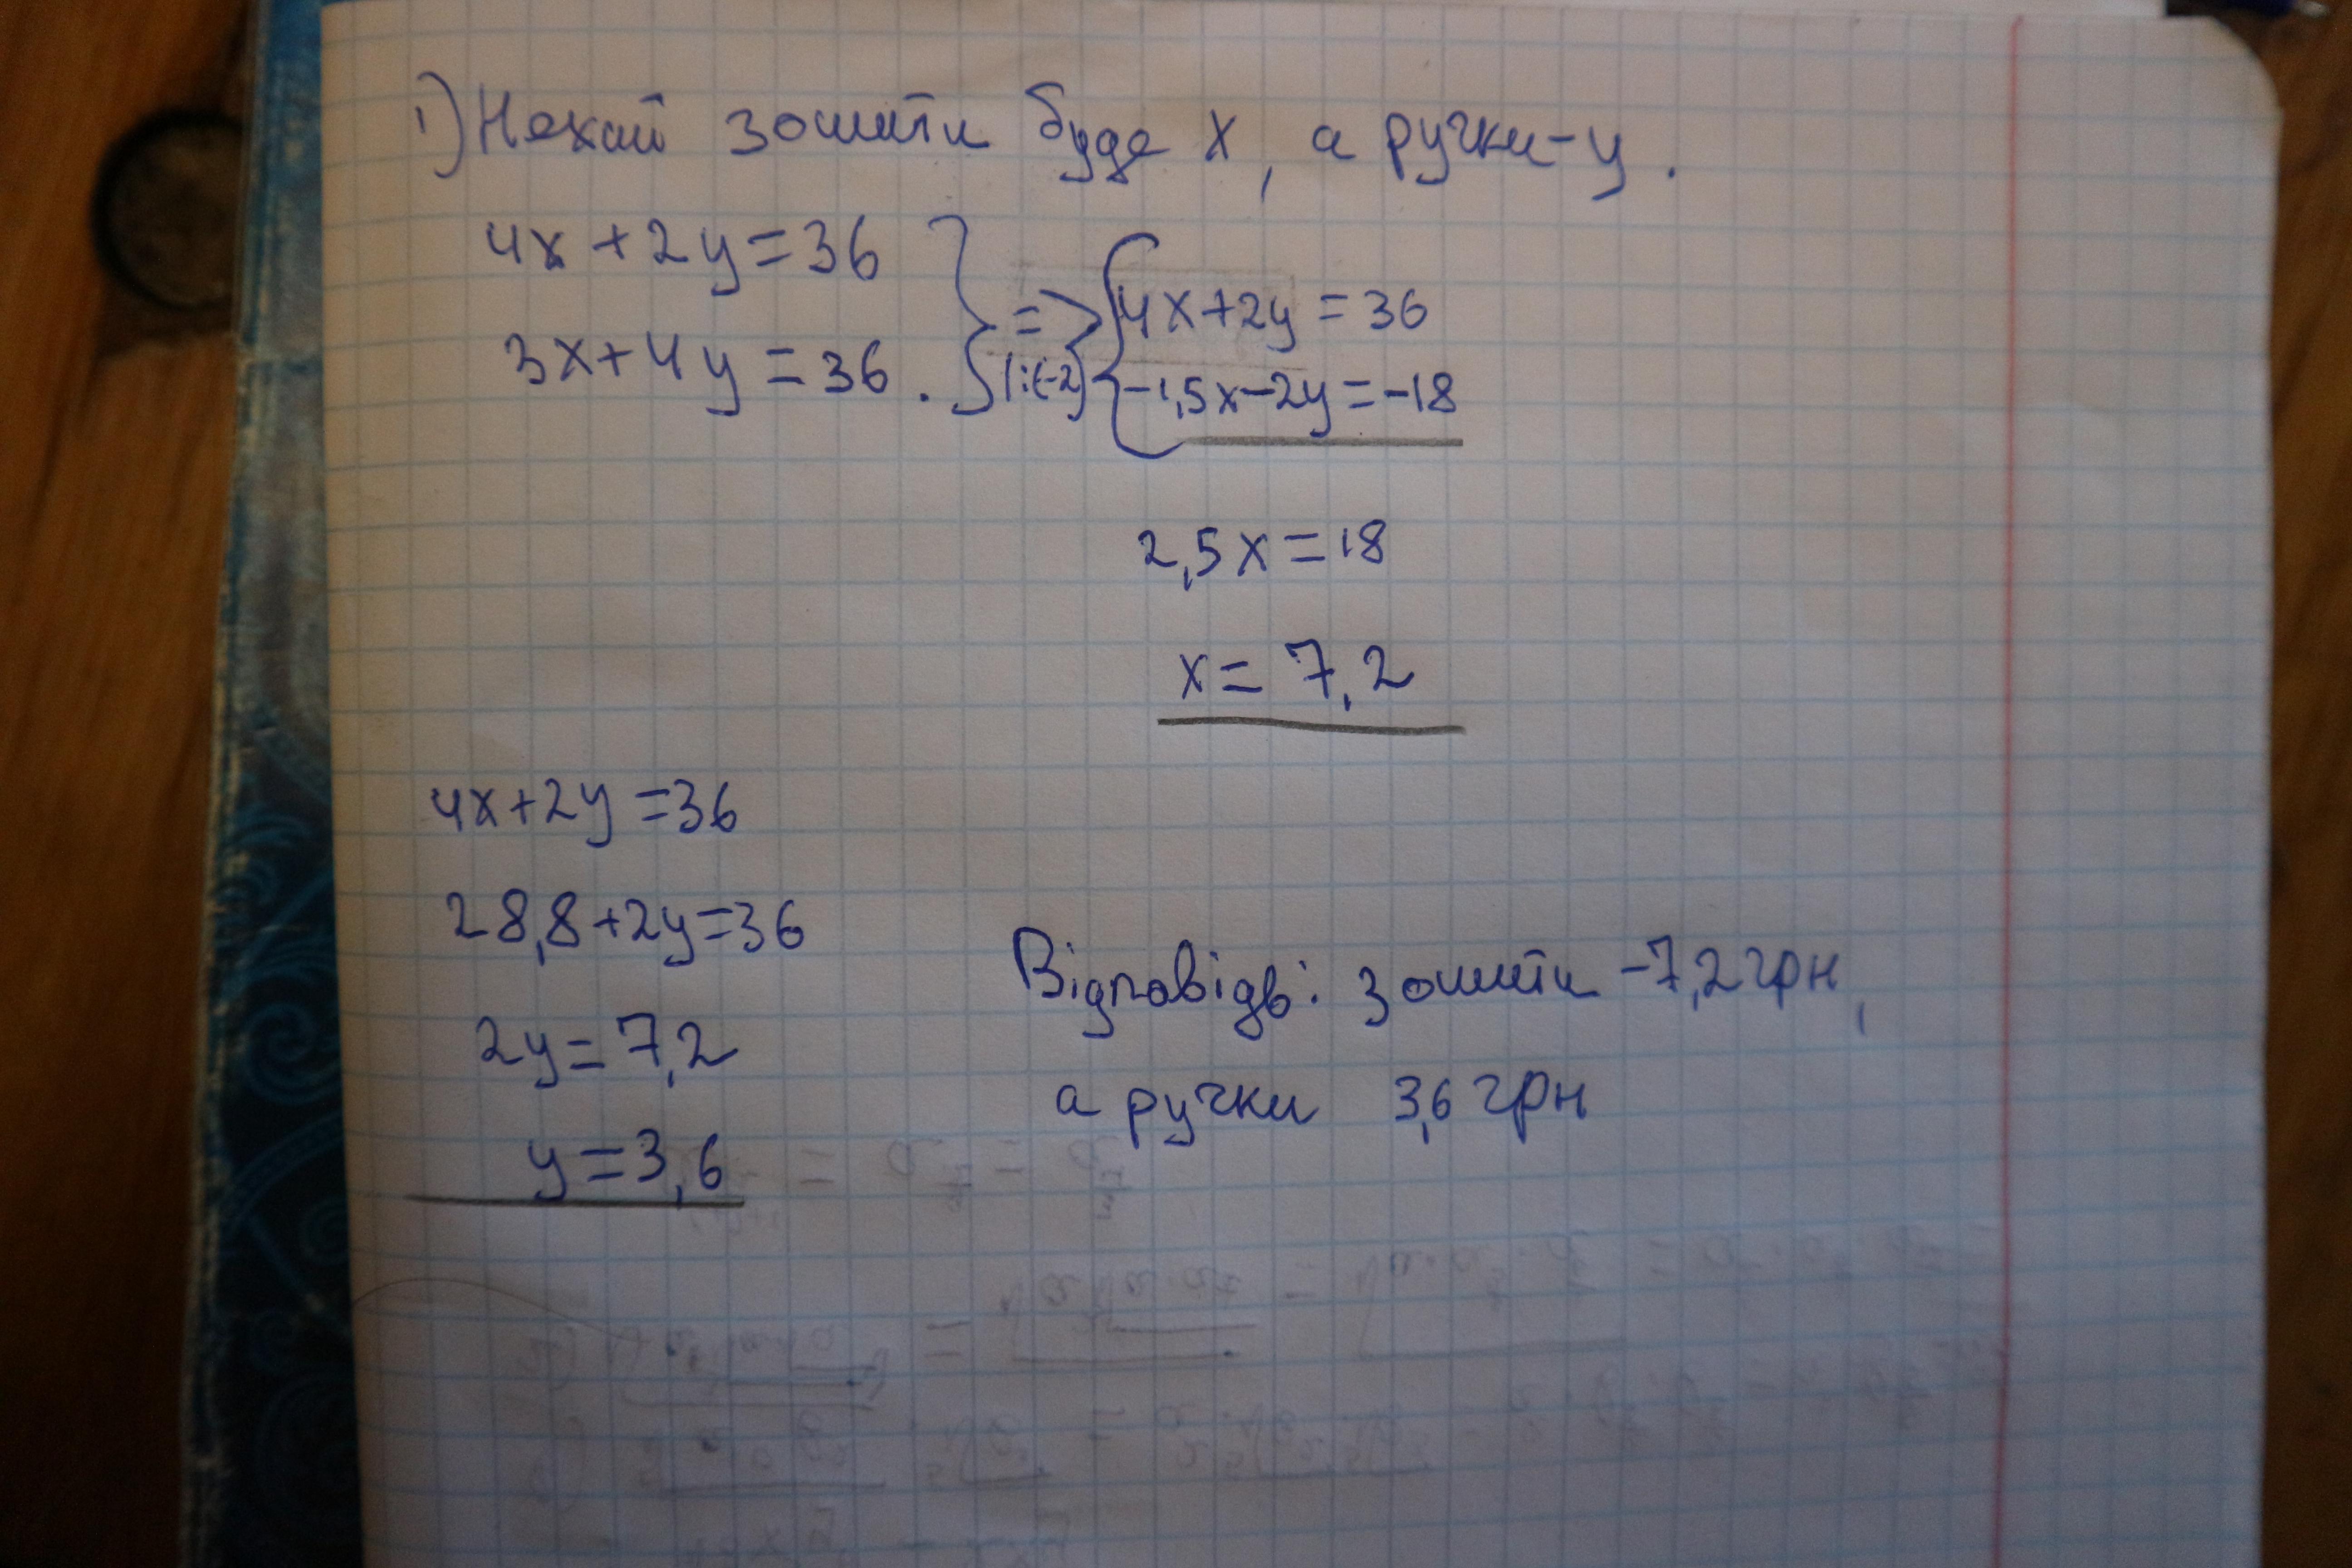 1) Нехай зошити буде x, а ручки - y.
4x + 2y = 36
3x + 4y = 36. } => |:(-2)
{ 4x + 2y = 36
-1,5x - 2y = -18
2,5x = 18
x = 7,2
4x + 2y = 36
28,8 + 2y = 36
2y = 7,2
y = 3,6
Відповідь: зошити - 7,2 грн,
а ручки 3,6 грн